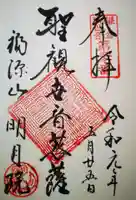 奉拝
令和元年
五月廿五日
聖観世音菩薩
福源山 明月院